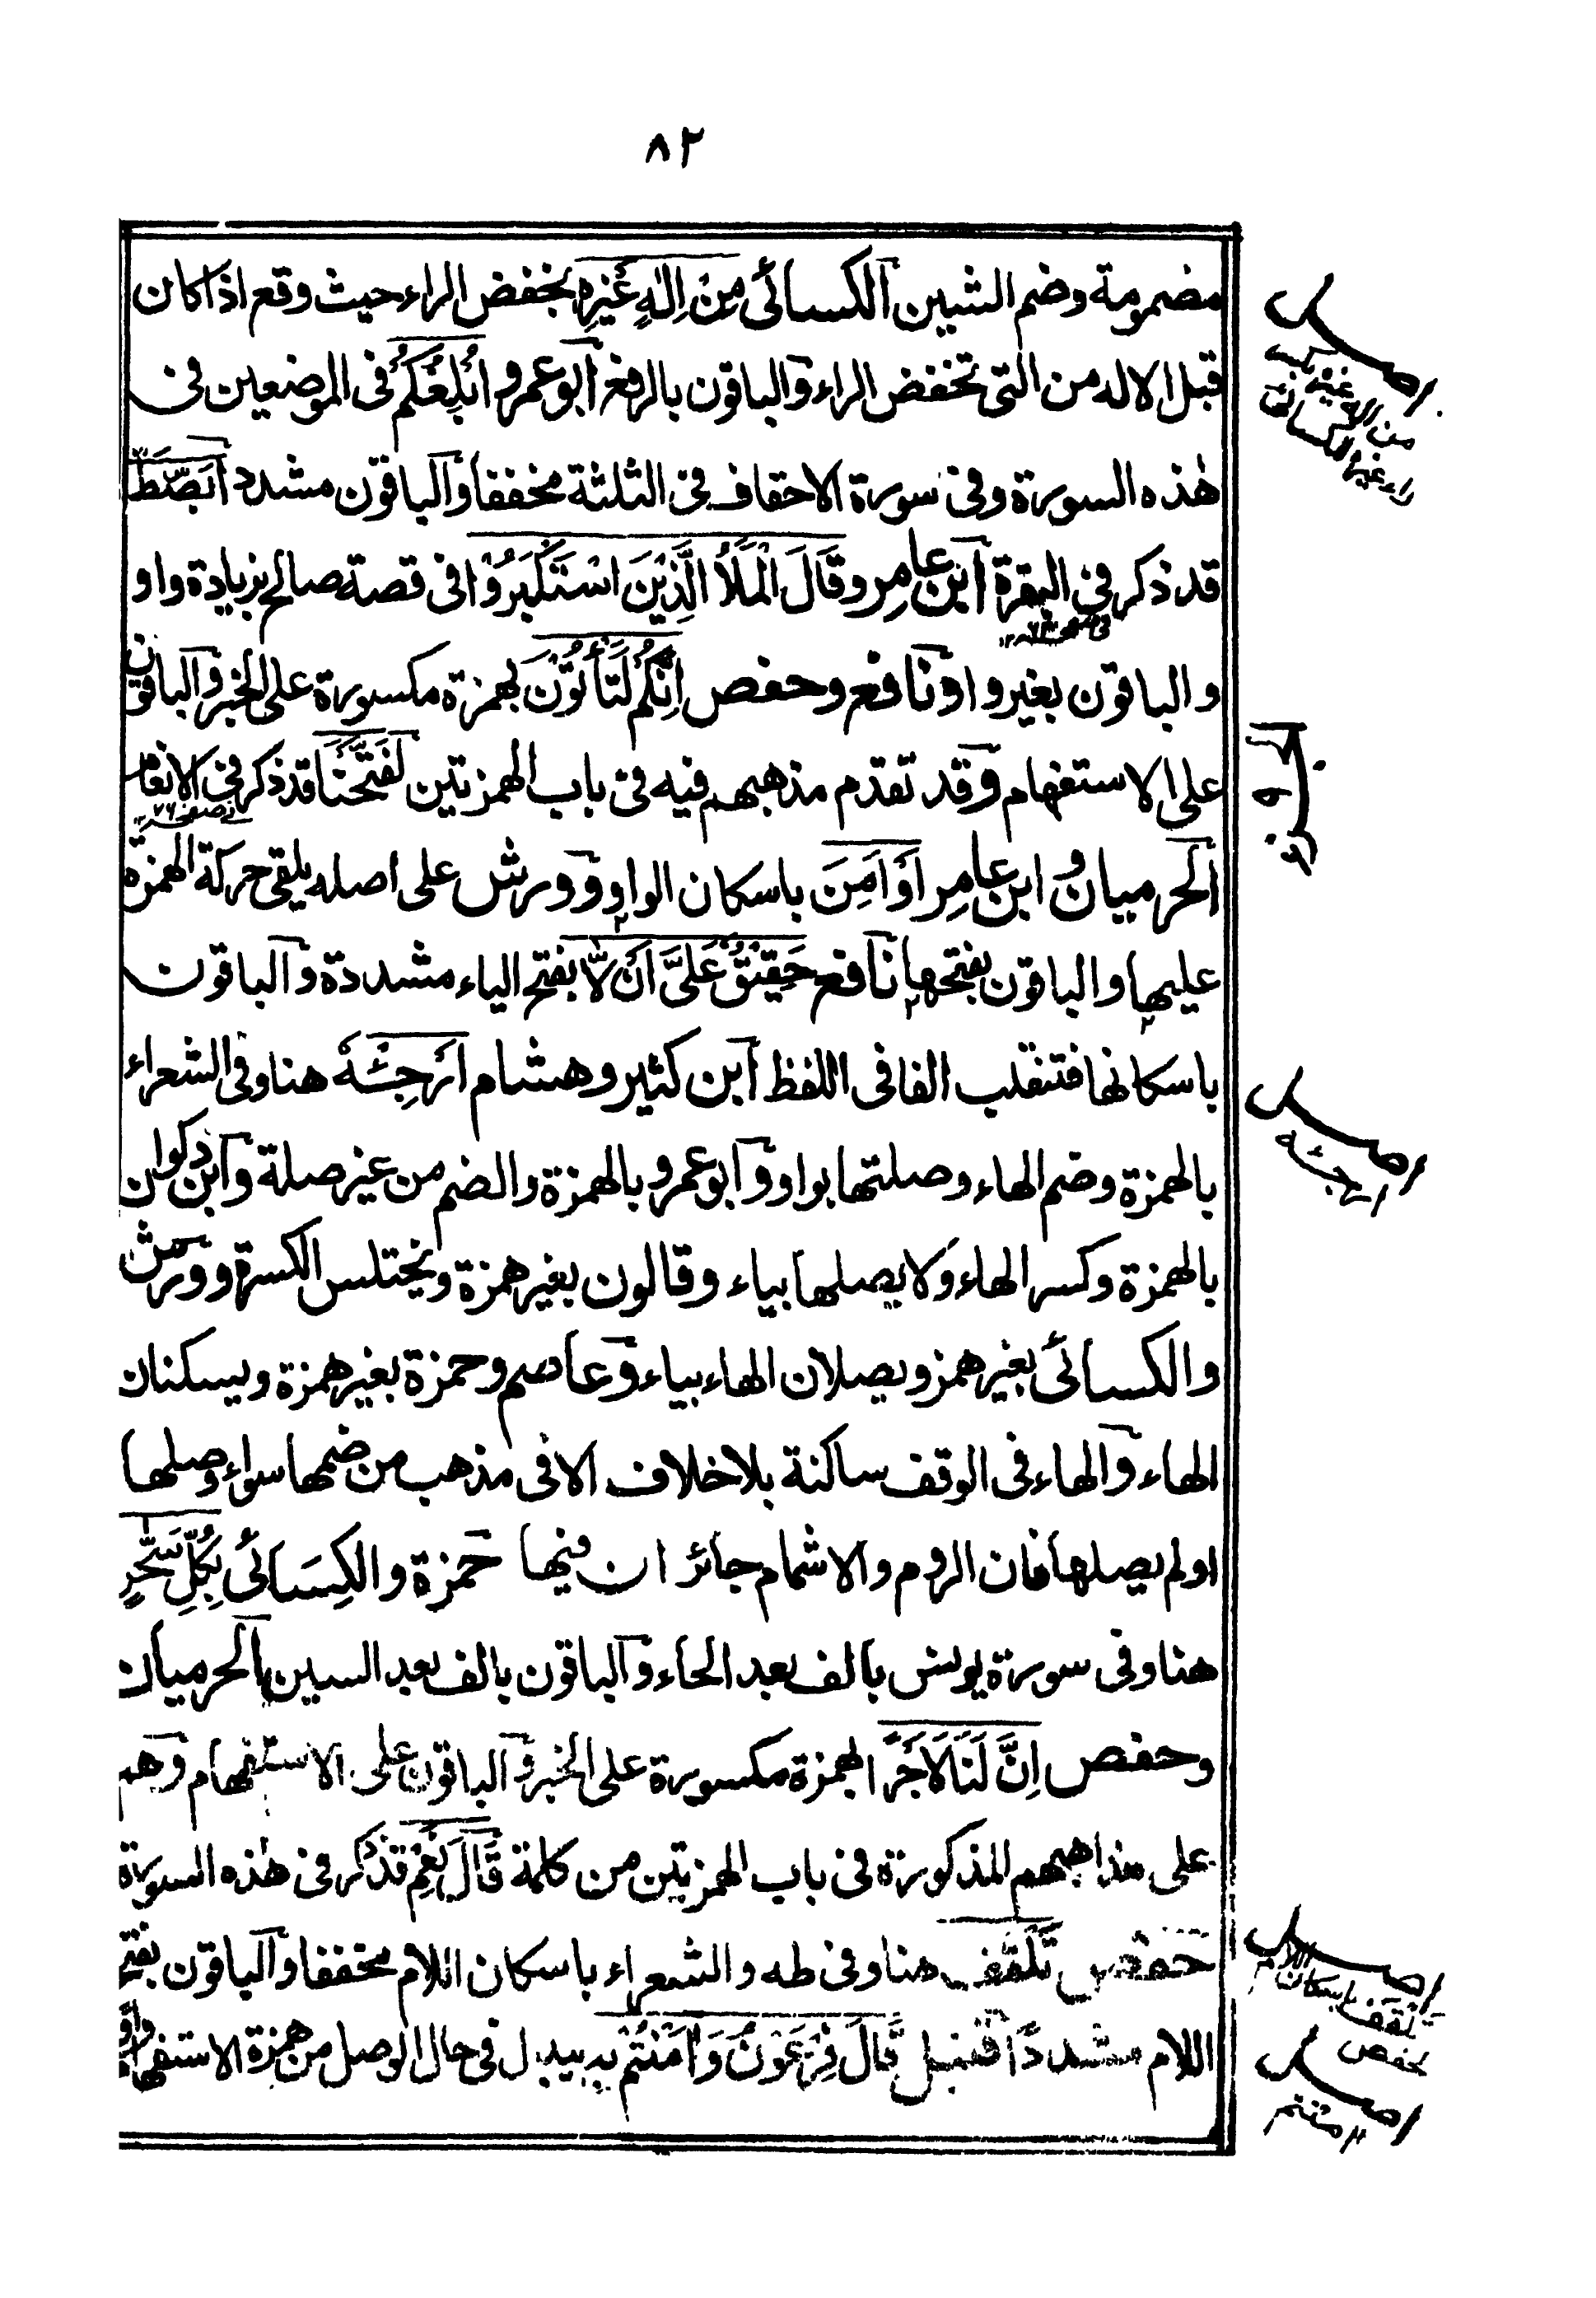 ٨٢
مضمومة وضم الشين الكسائى مِنْ اِلٰهٍ غَيْرِهِ بخفض الراء حيث وقع اذا كان
قبل الاله من التى تخفض الراء والباقون بالرفع ابو عمرو اُبْلِغُكُمْ فى الموضعين فى
هٰذه السورة وفى سورة الاحقاف فى الثلثة مخففا والباقون مشددا بَصْطَةً
قد ذكر فى البقرة ابن عامِر وقَالَ الْمَلَأُ الَّذِيْنَ اسْتَكْبَرُوْا فى قصة صالح بزيادة واو
والباقون بغير واو نافع وحفص اِنَّكُمْ لَتَأْتُوْنَ بهمزة مكسورة على الخبر والباقون
على الاستفهام وقد تقدم مذهبهم فيه فى باب الهمزتين لَفَتَّحْنَا قد ذكر فى الانعام
الحرميان وابن عامِر اَوْ اَمِنَ باسكان الواو وورش على اصله يلقى حركة الهمزة
عليها والباقون بفتحها نافع حَقِيْقٌ عَلَىَّ اَنْ لَّا بفتح الياء مشددة والباقون
باسكانها فتنقلب الفا فى اللفظ ابن كثير وهشام اَرْجِئْهُ هنا وفى الشعراء
بالهمزة وضم الهاء وصلتها بواو وابو عمرو بالهمزة والضم من غير صلة وابن ذكوان
بالهمزة وكسر الهاء ولا يصلها بياء وقالون بغير همزة ويختلس الكسرة وورش
والكسائى بغير همز ويصلان الهاء بياء وعاصم وحمزة بغير همزة ويسكنان
الهاء والهاء فى الوقف ساكنة بلا خلاف الا فى مذهب من ضمها سواء وصلها
اولم يصلها فان الروم والاشمام جائزان فيها حمزة والكِسَائى بِكُلِّ سَحّٰرٍ
هنا وفى سورة يونس بالف بعد الحاء والباقون بالف بعد السين الحرميان
وحفص اِنَّ لَنَا لَاَجْرًا بهمزة مكسورة على الخبر والباقون على الاستفهام وهم
على مذاهبهم المذكورة فى باب الهمزتين من كلمة قَالَ نَعِمْ قد ذكر فى هٰذه السورة
حفص تَلْقَفُ هنا وفى طه والشعراء باسكان اللام مخففا والباقون بفتح
اللام مشددًا قنبل قَالَ فِرْعَوْنُ وَاٰمَنْتُمْ بِهِ يبدل فى حال الوصل من همزة الاستفهام واوًا
اصل
من اله غيره
اصل
ارجئه
اصل
تلقف باسكان اللام
لحفص
اصل
ءامنتم